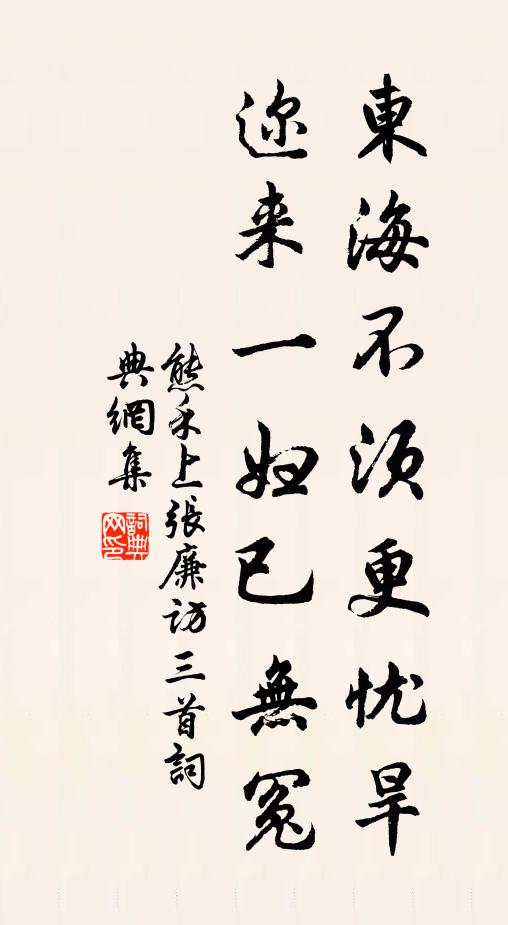 東海不須更忧旱
迩来一妇已無冤
熊禾上張廉访三首詞
典網集
詞典网印